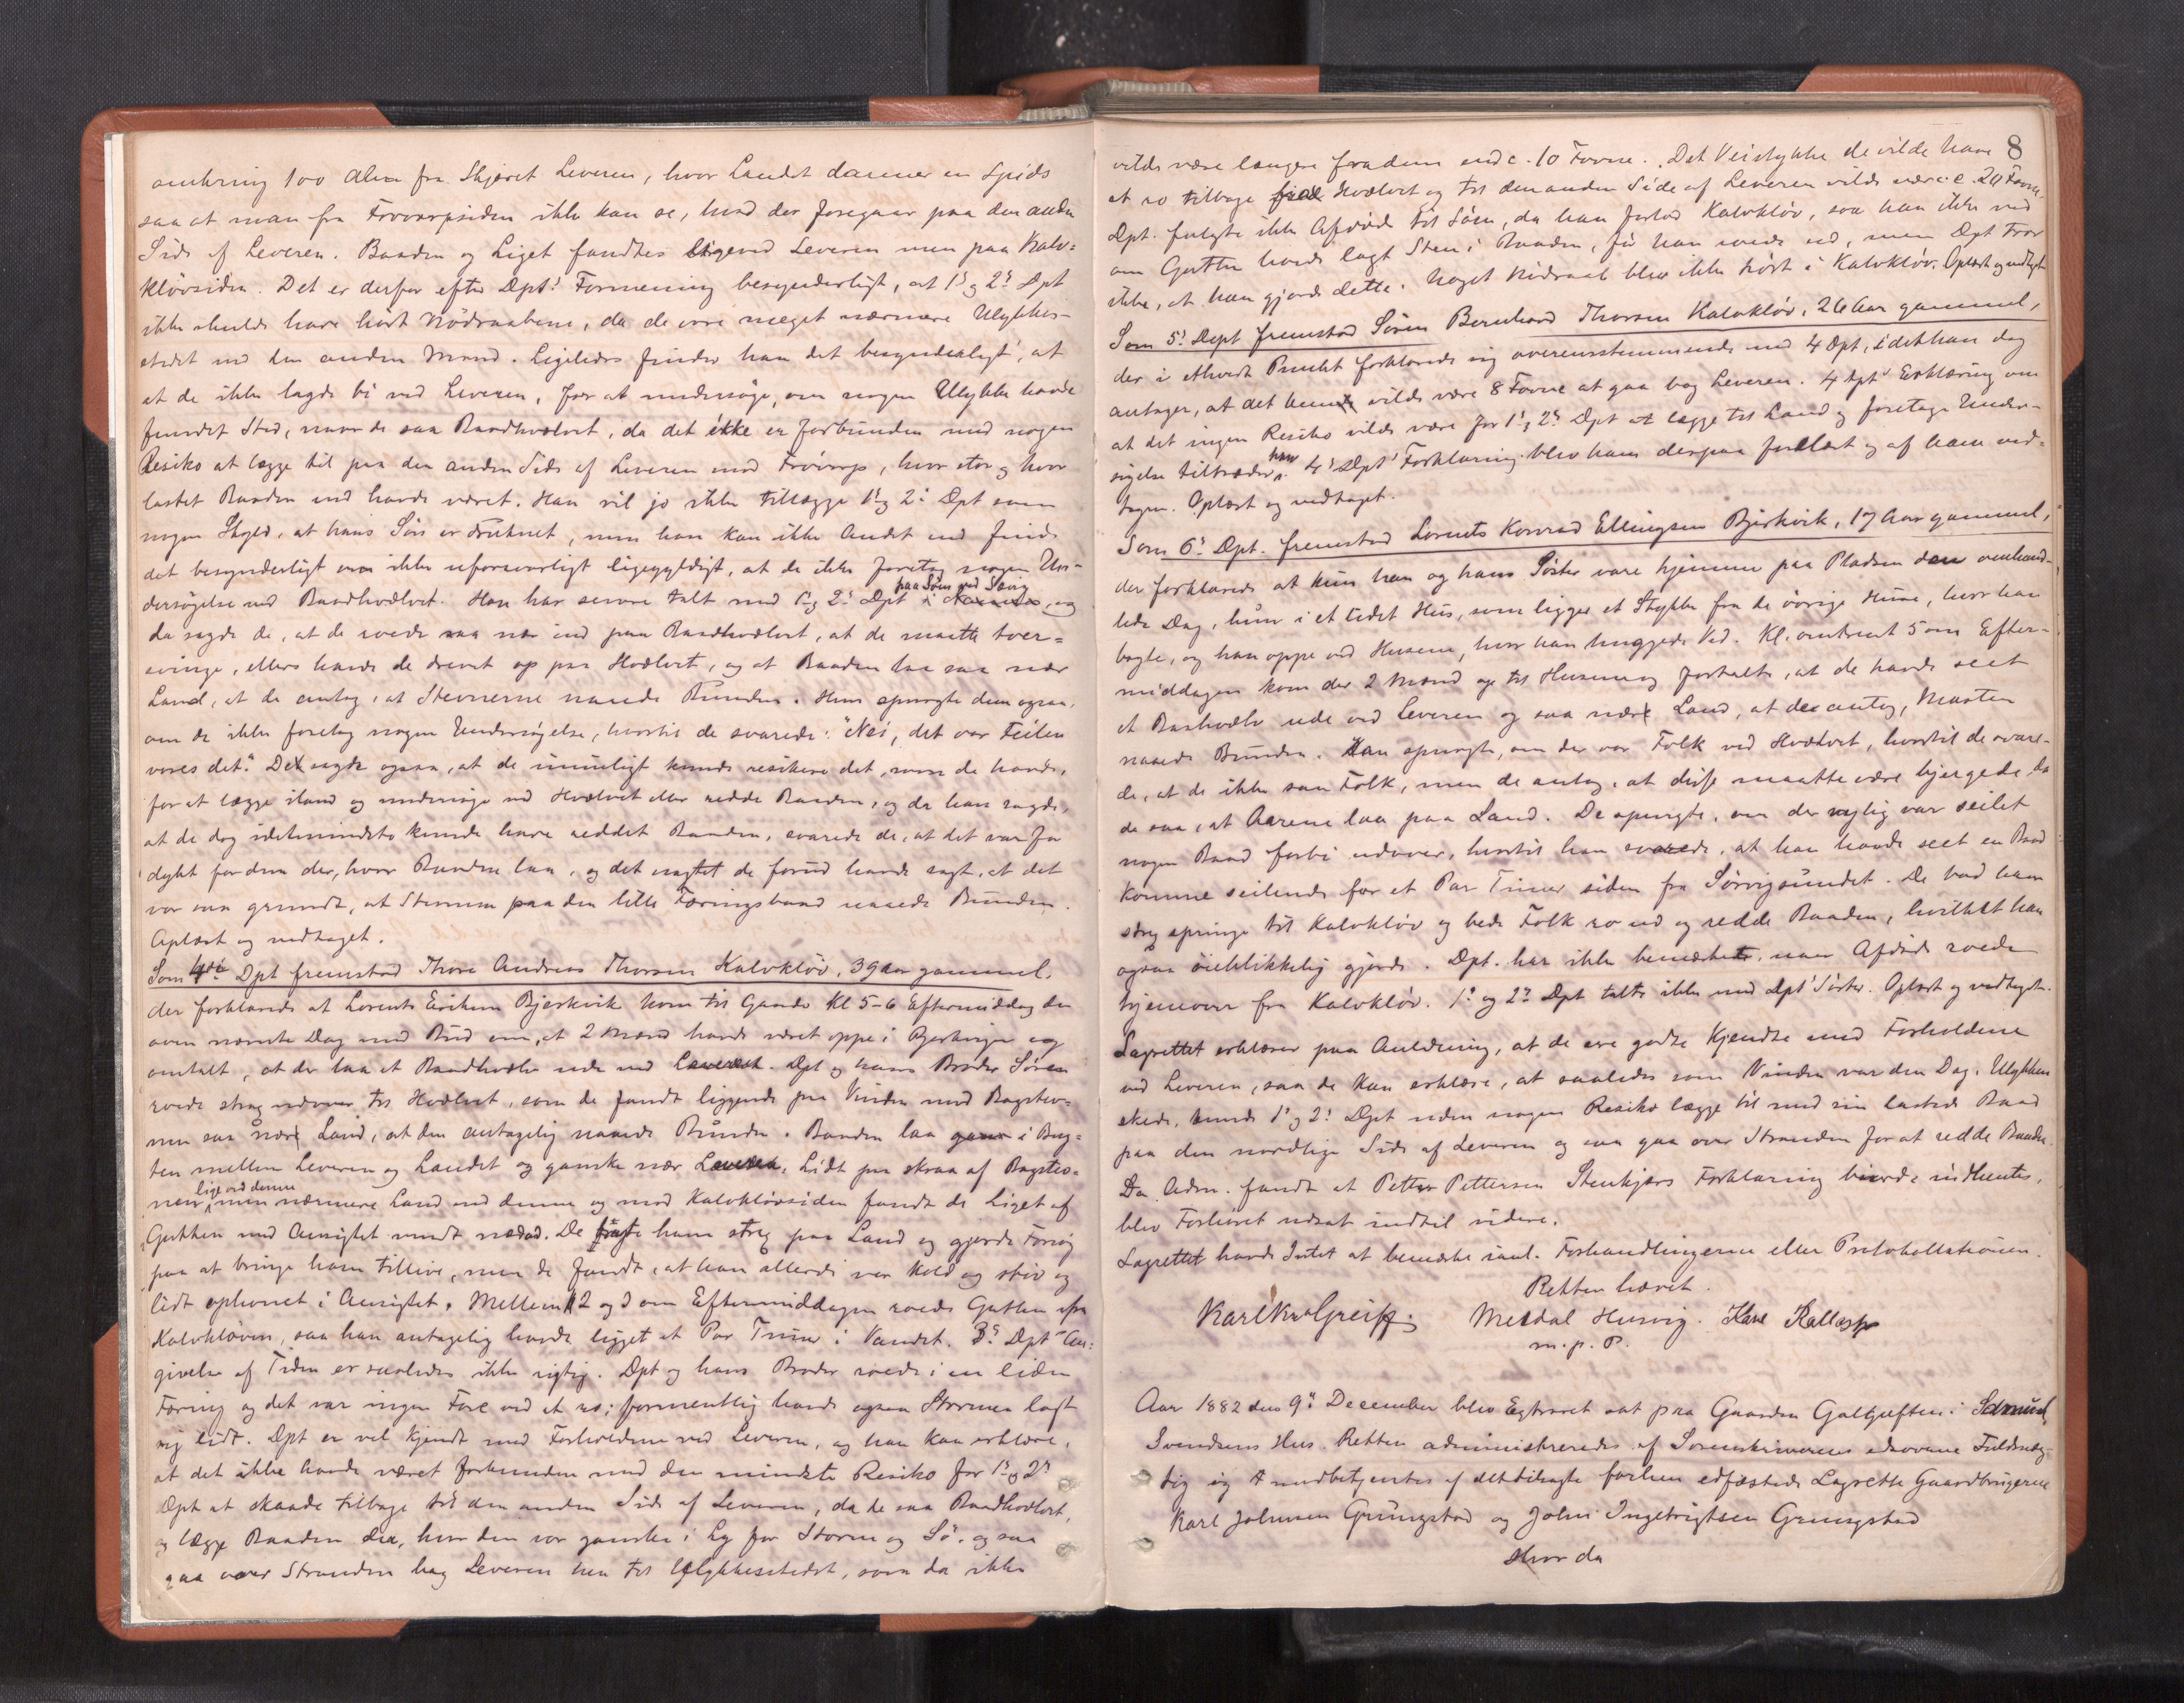 omkring 100 Alen fra Skjæret Leveren, hvor Landet danner en Spids
saa at man fra Trovorpsiden ikke kan se, hvad der foregaar paa den anden
Side af Leveren. Baaden og Liget fandtes ligeved Leveren men paa Kalv-
kløvsiden. Det er derfor efter Dpts Formening besynderligt, at 1s og 2s Dpt
ikke skulde have hørt Nødraabene, da de vare meget nærmere Ulykkes-
stedet end den anden Mand. Ligeledes finder han det besynderligt, at
at de ikke lagde bi ved Leveren, for at undersøge, om nogen Ulykke havde
fundet Sted, naar de saa Baadhvælvet, da det ikke er forbunden med nogen
Resiko at lægge til paa den anden Side af Leveren mod Trovorp, hvor stor og hvor
lastet Baaden end havde været. Han vil jo ikke tillægge 1s og 2s Dpt som
nogen Skyld, at hans Søn er druknet, men han kan ikke Andet end finde
det besynderligt om ikke uforsvarligt ligegyldigt, at de ikke foretog nogen Un-
dersøgelse ved Baadhvælvet. Han har senere talt med 1s og 2s Dpt paa Søm ved Sørvig, og
da sagde de, at de roede saa nær ind paa Baadhvælvet, at de maatte tver-
svinge, ellers havde de drevet op paa Hvælvet, og at Baaden laa saa nær
Land, at de antog, at Stevnerne naaede Bunden. Han spurgte dem ogsaa,
om de ikke foretog nogen Undersøgelse, hvortil de svarede: "Nei, det var Feilen
vores det." De sagde ogsaa, at de umuligt kunde resikere det, som de havde,
for at lægge iland og undersøge ved Hvælvet eller redde Baaden, og da han sagde,
at de dog idetmindste kunde have reddet Baaden, svarede de, at det var for
dybt for dem der, hvor Baaden laa, og det uagtet de forud havde sagt, at det
var saa grundt, at Stevnen paa den lille Færingsbaad naaede Bunden.
Oplæst og vedtaget.
Som 4de Dpt fremstod Thore Andreas Thorsen Kalvkløv, 39 Aar gammel.
der forklarede at Lorents Eriksen Bjerkvik kom til Gaarde Kl 5-6 Eftermiddag den
oven nævnte Dag med Bud om, at 2 Mænd havde været oppe i Bjerkvigen og
omtalt, at der laa et Baadhvælv ude ved Leveren. Dpt og hans Broder Søren
roede strax udover til Hvælvet, som de fandt liggende paa Vinden med Bagstev-
nen saa nær Land, at den antagelig naaede Bunden. Baaden laa i Bug-
ten mellem Leveren og Landet og ganske nær Leveren. Lidt paa skraa af Bagstev-
nen, lige ved denne men nærmere Land end denne og mod Kalvkløvsiden fandt de Liget af
Gutten med Ansigtet vendt nedad. De bragte ham strax paa Land og gjorde Forsøg
paa at bringe ham tillive, men de fandt, at han allerede var kold og stiv og
lidt ophovnet i Ansigtet. Mellem Kl 2 og 3 om Eftermiddagen roede Gutten ifra
Kalvkløven, saa han antagelig havde ligget et Par Timer i Vandet. 3s Dpts An-
givelse af Tiden er saaledes ikke rigtig. Dpt og hans Broder roede i en liden
Færing og det var ingen Fare ved at ro; formentlig havde ogsaa Stormen lagt
sig lidt. Dpt er vel kjendt med Forholdene ved Leveren, og han kan erklære,
at det ikke havde været forbunden med den mindste Resiko for 1s og 2s
Dpt at skaade tilbage til den anden Side af Leveren, da de saa Baadhvælvet,
og lægge Baaden der, hvor den var ganske i Ly for Storm og Sø, og saa
gaa over Stranden bag Leveren hen til Ulykkesstedet, som da ikke
8
vilde være længere fra dem end c. 10 Favne. Det Veistykke de vilde have
at ro tilbage fra Hvælvet og til den anden Side af Leveren vilde være c. 20 Favne.
Dpt. fulgte ikke Afdøde til Søen, da han forlod Kalvkløv, saa han ikke ved
om Gutten havde lagt Sten i Baaden, før han roede ud, men Dpt tror
ikke, at han gjorde dette. Noget Nødraab blev ikke hørt i Kalvkløv. Oplæst og vedtaget.
Som 5s Dept fremstod Søren Bernhard Thorsen Kalvkløv, 26 Aar gammel,
der i ethvert Punkt forklarede sig overensstemmende med 4 Dpt, idet han dog
antager, at det vilde være 8 Favne at gaa bag Leveren. 4 Dpts Erklæring om
at det ingen Resiko vilde være for 1s og 2s Dpt at lægge til Land og foretage Under-
søgelse tiltræder han. 4s Dpts Forklaring blev ham derpaa forelæst og af ham ved-
tagen. Oplæst og vedtaget.
Som 6s Dpt. fremstod Lorents Konrad Ellingsen Bjerkvik, 17 Aar gammel,
der forklarede at kun han og hans Søster vare hjemme paa Pladsen den omhand-
lede Dag, hun i et lidet Hus, som ligger et Stykke fra de øvrige Huse, hvor han
bagte, og han oppe ved Husene, hvor han huggede Ved. Kl. omtrent 5 om Efter-
middagen kom der 2 Mænd op til Husene og fortalte, at de havde seet
et Baahvælv ude ved Leveren og saa nær Land, at de antog, Masten
naaede Bunden. Han spurgte, om der var Folk ved Hvælvet, hvortil de svare-
de, at de ikke saa Folk, men de antog, at disse maatte være bjergede, da
de saa, at Aarene laa paa Land. De spurgte, om der nylig var seilet
nogen Baad forbi udover, hvortil han svarede, at han havde seet en Baad
komme seilende for et Par Timer siden fra Sørvigsundet. De bad ham
strax springe til Kalvkløv og bede Folk ro ud og redde Baaden, hvilket han
ogsaa øieblikkelig gjorde. Dpt. har ikke bemærket, naar Afdøde roede
hjemover fra Kalvkløv. 1s og 2s Dpt talte ikke med Dpts Søster. Oplæst og vedtaget.
Lagrettet erklærer paa Anledning, at de ere godt kjendte med Forholdene
ved Leveren, saa de kan erklære, at saaledes som Vinden var den Dag, Ulykken
skede, kunde 1s og 2s Dpt uden nogen Resiko lægge til med sin lastede Baad
paa den nordlige Side af Leveren og saa gaa over Stranden for at redde Baaden.
Da Adm. fandt at Petter Pettersen Stenkjærs Forklaring burde indhentes,
blev Forhøret udsat indtil videre.
Lagrettet havde Intet at bemærke saavel. Forhandlingerne eller Protokollationen.
Retten hævet.
Karl Kr Greiff. Meidal Husvig. Hans Kallassp
m. p. P.
Aar 1882 den 9de December blev Extraret sat paa Gaarden Galtgeften i Edmund
Svendsens Hus. Retten administreredes af Sorenskriverens edsvorne Fuldmæg-
tig og medbetjentes af det tilsagte forhen edfæstede Lagrette Gaardbrugerne
Karl Johnsen Grungstad og Johni Ingebrigtsen Grungstad
Hvor da